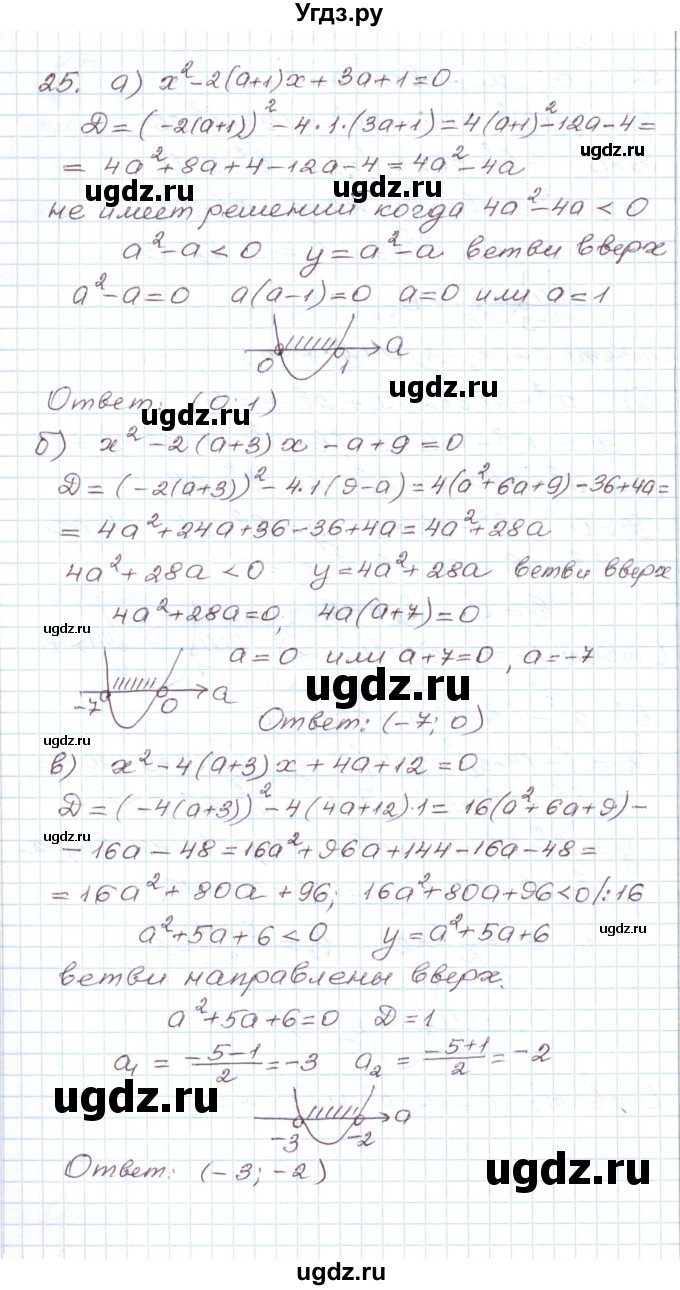 Угдз.ру
25. а) x²-2(a+1)x+3a+1=0
Д=(-2(a+1))²-4·1·(3a+1)=4(a+1)²-12a-4=
ugdz.ru
=4a²+8a+4-12a-4=4a²-4a
ugdz.ru ugdz.ru
не имеет решений когда 4a²-4a<0
a²-a<0 y=a²-a ветви вверх
a²-a=0 a(a-1)=0 a=0 или a=1
0 1 a
ugdz.ru
Ответ: (0;1)
ugdz.ru
б) x²-2(a+3)x-a+9=0
Д=(-2(a+3))²-4·1(9-a)=4(a²+6a+9)-36+4a=
=4a²+24a+36-36+4a=4a²+28a
4a²+28a<0 y=4a²+28a ветви вверх
4a²+28a=0, 4a(a+7)=0
ugdz.ru
a=0 или a+7=0, a=-7
ugdz.ru
-7 0 a
Ответ: (-7; 0)
ugdz.ru
в) x²-4(a+3)x+4a+12=0
Д=(-4(a+3))²-4(4a+12)·1=16(a²+6a+9)-
ugdz.ru
-16a-48=16a²+96a+144-16a-48=
=16a²+80a+96; 16a²+80a+96<0/:16
a²+5a+6<0 y=a²+5a+6
ugdz.ru
ветви направлены вверх.
a²+5a+6=0 Д=1
a₁=(-5-1)/2=-3 a₂=(-5+1)/2=-2
ugdz.ru
-3 -2 a
Ответ: (-3; -2)
ugdz.ru
ugdz.ru